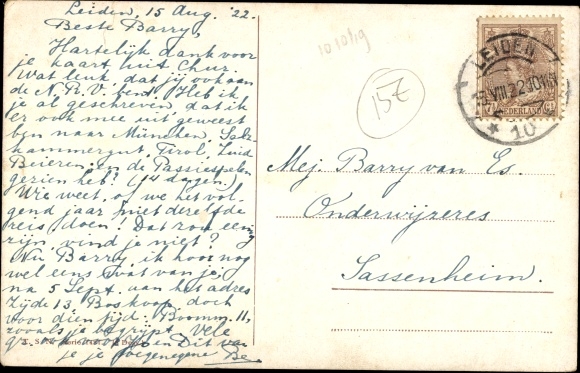 Leiden, 15 Aug. '22.
Beste Barry,
Hartelijk dank voor
je kaart uit Chur.
Wat leuk, dat jij ook aan
de N.R.V. bent. Heb ik
je al geschreven, dat ik
er ook mee uit geweest
ben naar München, Salz-
kammergut, Tirol, Zuid
Beieren en de Passiespelen
gezien heb? (14 dagen.)
Wie weet, of we het vol-
gend jaar niet derelfde
reis doen! Dat zou eenig
zijn, vind je niet?
Nu Barry, ik hoor nog
wel eens wat van je,
na 5 Sept. aan het adres
Zijde 13 Boskoop, doch
voor dien tijd: Boomm. 11,
zooals je begrijpt. Vele
gr. van
je je toegenegene Be
1010/19
15E
LEIDEN
VIII 22
10
NEDERLAND
Mej. Barry van Es.
Onderwijzeres
Sassenheim.